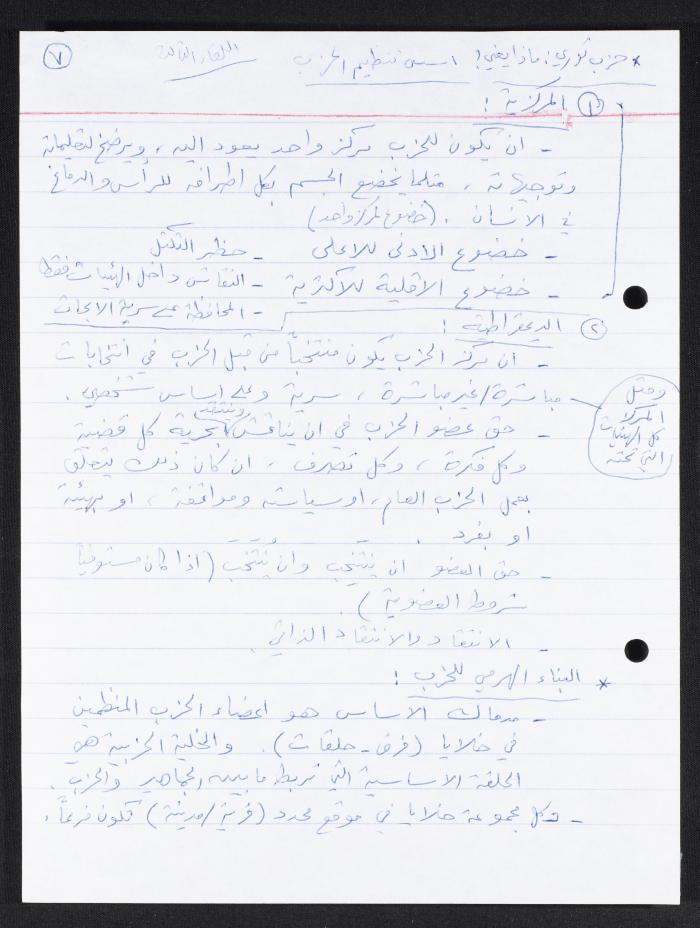 ٧
اللقاء الثالث
* حزب ثوري: ماذا يعني؟ اسس تنظيم الحزب
١) المركزية:
- ان يكون للحزب مركز واحد يعود اليه، ويرضخ لتعليماته
وتوجيهاته، مثلما يخضع الجسم بكل اطرافه للرأس والدماغ
في الانسان. (خضوع لمركز واحد)
- خضوع الادنى للاعلى - حظر التكتل
- خضوع الاقلية للاكثرية - النقاش داخل الهيئات فقط
- المحافظة على سرية الابحاث
٢) الديمقراطية:
- ان مركز الحزب يكون منتخباً من قبل الحزب في انتخابات
مباشرة/غير مباشرة، سرية وعلى اساس شخصي.
ومثل
المركز
كل الهيئات
التي تحته
- حق عضو الحزب في ان يناقش وينتقد بحرية كل قضية
وكل فكرة، وكل تصرف، ان كان ذلك يتعلق
بعمل الحزب العام، او سياسته ومواقفه، او بهيئة
او بفرد.
- حق العضو ان يَنتخِب وان يُنتخَب (اذا كان مستوفياً
شروط العضوية).
- الانتقاد والانتقاد الذاتي.
* البناء الهرمي للحزب:
- مدماك الاساس هو اعضاء الحزب المنظمين
في خلايا (فرق - حلقات). والخلية الحزبية هي
الحلقة الاساسية التي تربط ما بين الجماهير والحزب.
- وكل مجموعة خلايا في موقع محدد (قرية/مدينة) تكون فرعاً.